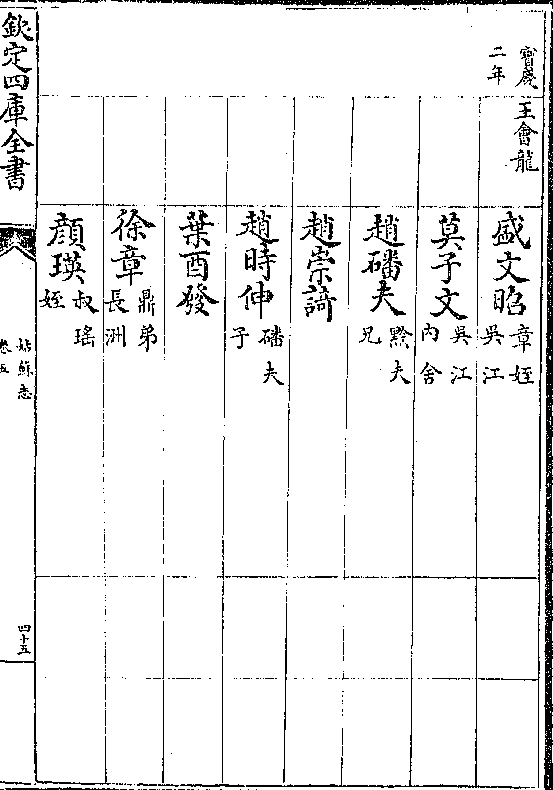 寶慶二年
王會龍
盛文昭 章姪 吳江
莫子文 吳江 內舍
趙磻夫 黙夫兄
趙崇𧩙
趙時伸 磻夫子
葉酉發
徐章 鼎弟 長洲
顔瑛 叔瑤姪
欽定四庫全書
姑蘇志
卷五
四十五